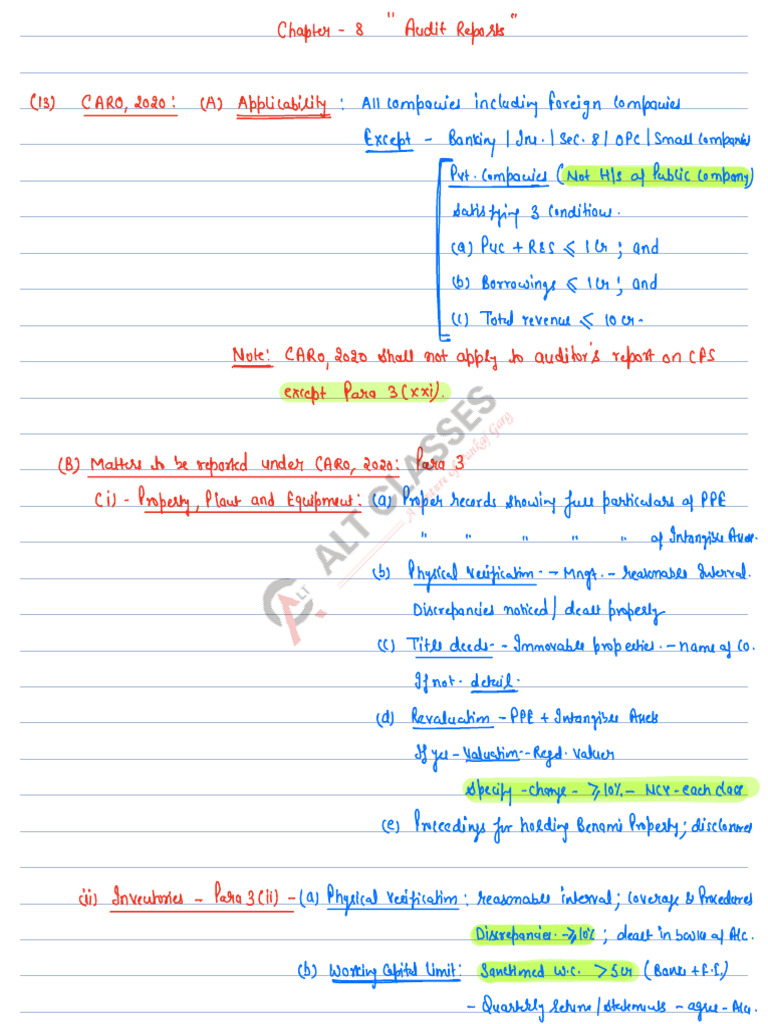 Chapter - 8 "Audit Reports"
(13) CARO, 2020: (A) Applicability: All companies including foreign companies
Except - Banking | Ins. | Sec. 8 | OPC | Small companies
Pvt. companies (Not H/S of Public Company)
Satisfying 3 conditions.
(a) PUC + R&S ≤ 1 Cr ; and
(b) Borrowings ≤ 1 Cr ; and
(c) Total revenue ≤ 10 cr.
Note: CARO, 2020 shall not apply to auditor's report on CFS
except Para 3(xxi).
(B) Matters to be reported under CARO, 2020: Para 3
(i) - Property, Plant and Equipment: (a) Proper records showing full particulars of PPE
" " " " " of Intangible Assets.
(b) Physical verification - Mngt. - reasonable Interval.
Discrepancies noticed / dealt properly
(c) Title deeds - Immovable properties. - name of Co.
If not. detail.
(d) Revaluation - PPE + Intangible Assets
If yes - Valuation - Regd. valuer
Specify - change - ≥ 10% - NCV - each class
(e) Proceedings for holding Benami Property; disclosures
(ii) Inventories - Para 3(ii) - (a) Physical verification: reasonable interval; coverage & Procedures
Discrepancies - ≥ 10% ; dealt in books of A/c.
(b) Working Capital Limit: Sanctioned W.C. > 5 cr (Banks + F.I.)
- Quarterly return / statements - agree - A/cs.
ALT CLASSES
A venture of Pankaj Garg
ALT